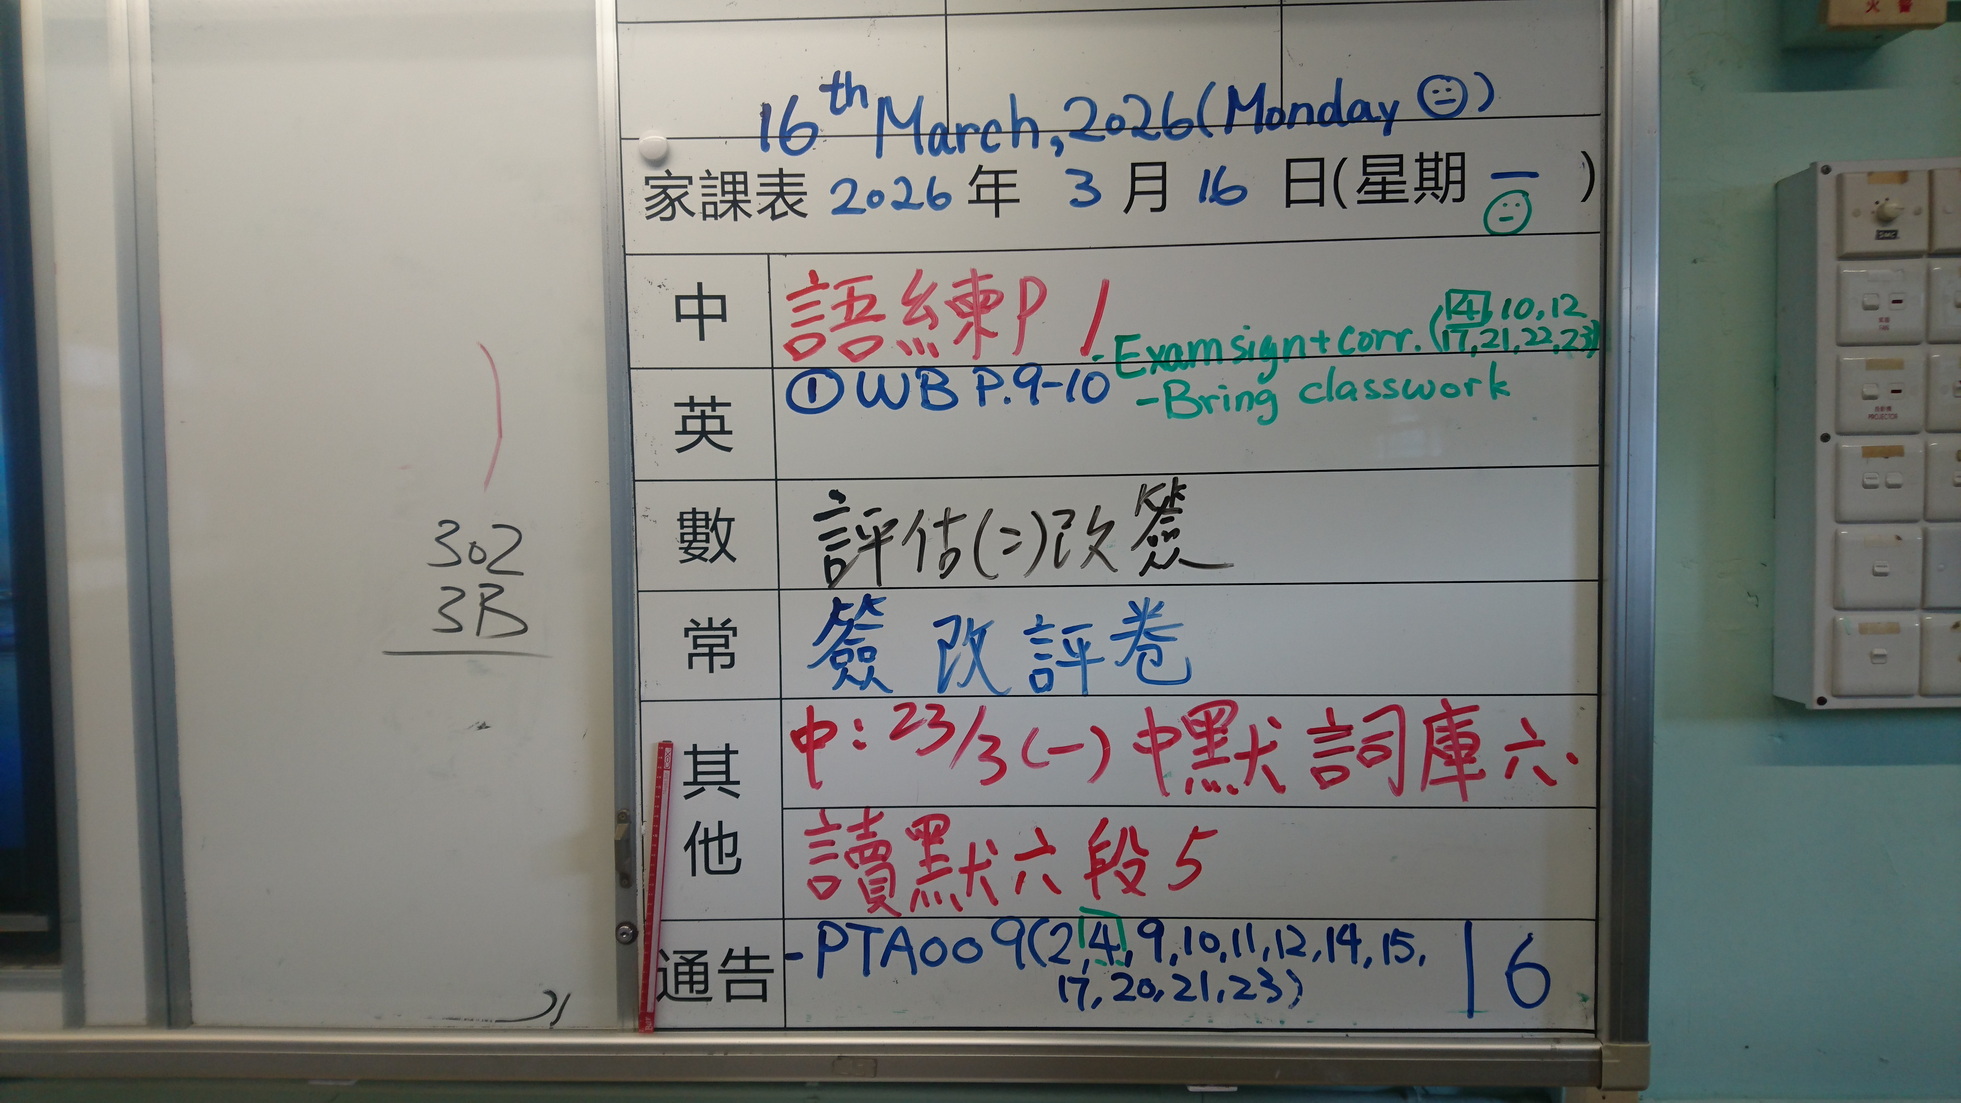 火警
16th March, 2026 (Monday)
家課表 2026 年 3 月 16 日(星期一)
中 語練P1
英 ① WB P.9-10
- Exam sign + corr. (4, 10, 12
17, 21, 22, 23)
- Bring classwork
數 評估(二)改簽
常 簽改評卷
其他 中: 23/3 (一) 中默詞庫六.
讀默六段5
通告 - PTA009 (2, 4, 9, 10, 11, 12, 14, 15,
17, 20, 21, 23)
16
302
3B
PROJECTOR